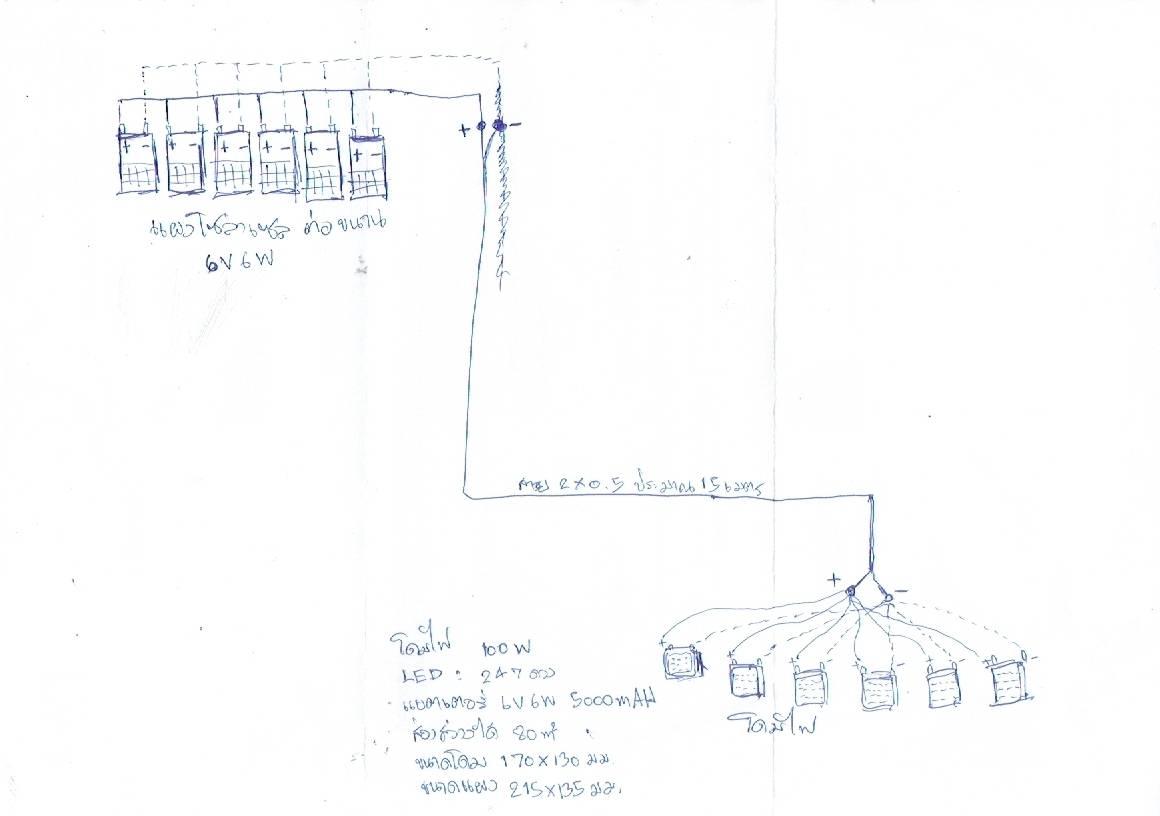 + -
+ - + - + - + - + - + -
แผงโซลาเซล ต่อขนาน
6V 6W
สาย 2×0.5 ประมาณ 15 เมตร
+ -
+ - + + + - + - + -
โคมไฟ 100W
LED : 247 ดวง
แบตเตอรี่ 6V 6W 5000mAH
ส่องสว่างได้ 80m²
ขนาดโคม 170×130 มม.
ขนาดแผง 215×135 มม.
โคมไฟ